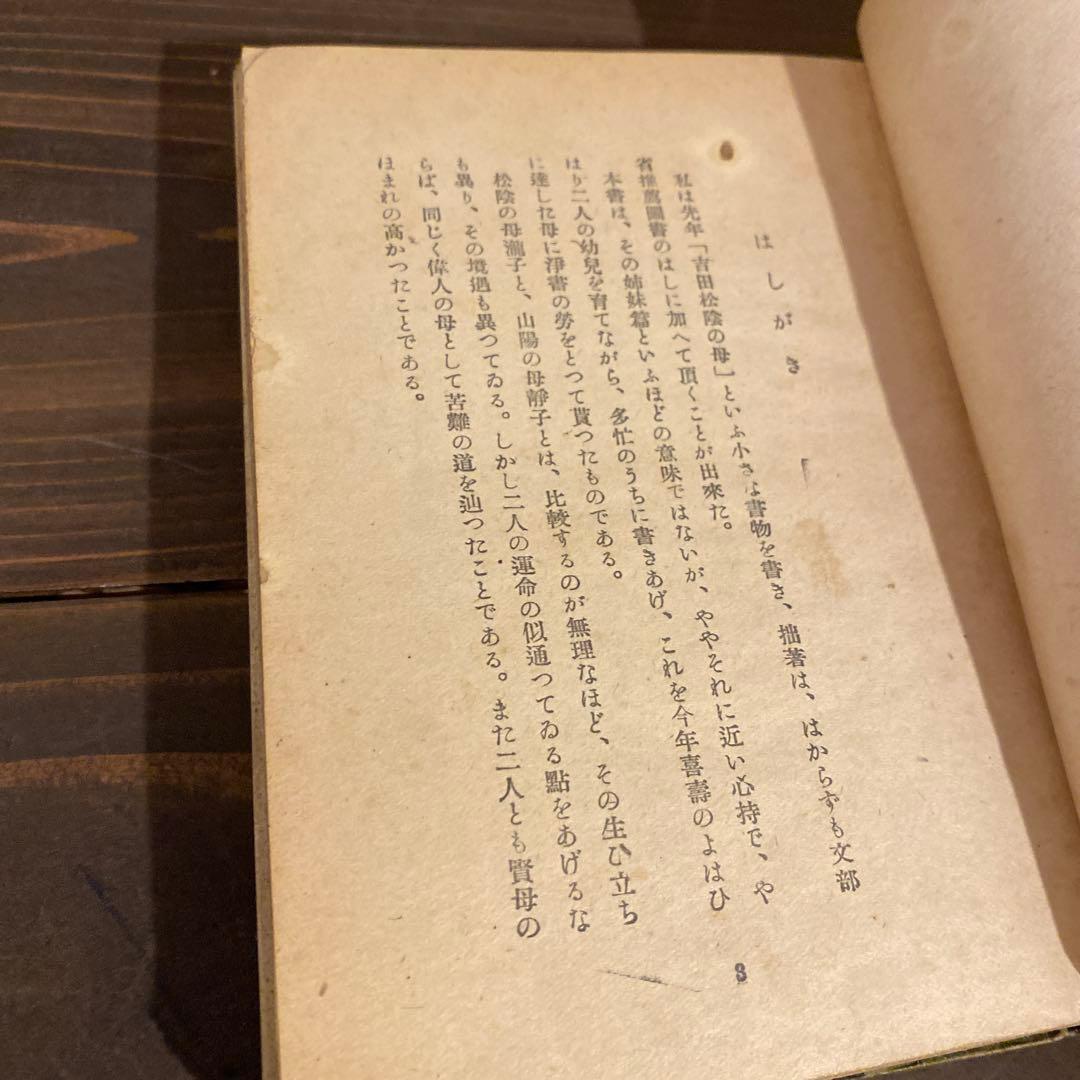 はしがき
私は先年「吉田松陰の母」といふ小さな書物を書き、拙著は、はからずも文部
省推薦圖書のはしに加へて頂くことが出來た。
本書は、その姉妹篇といふほどの意味ではないが、ややそれに近い心持で、や
はり二人の幼兒を育てながら、多忙のうちに書きあげ、これを今年喜壽のよはひ
に達した母に淨書の勞をとつて貰つたものである。
松陰の母瀧子と、山陽の母靜子とは、比較するのが無理なほど、その生ひ立ち
も異り、その境遇も異つてゐる。しかし二人の運命の似通つてゐる點をあげるな
らば、同じく偉人の母として苦難の道を辿つたことである。また二人とも賢母の
ほまれの高かつたことである。
3